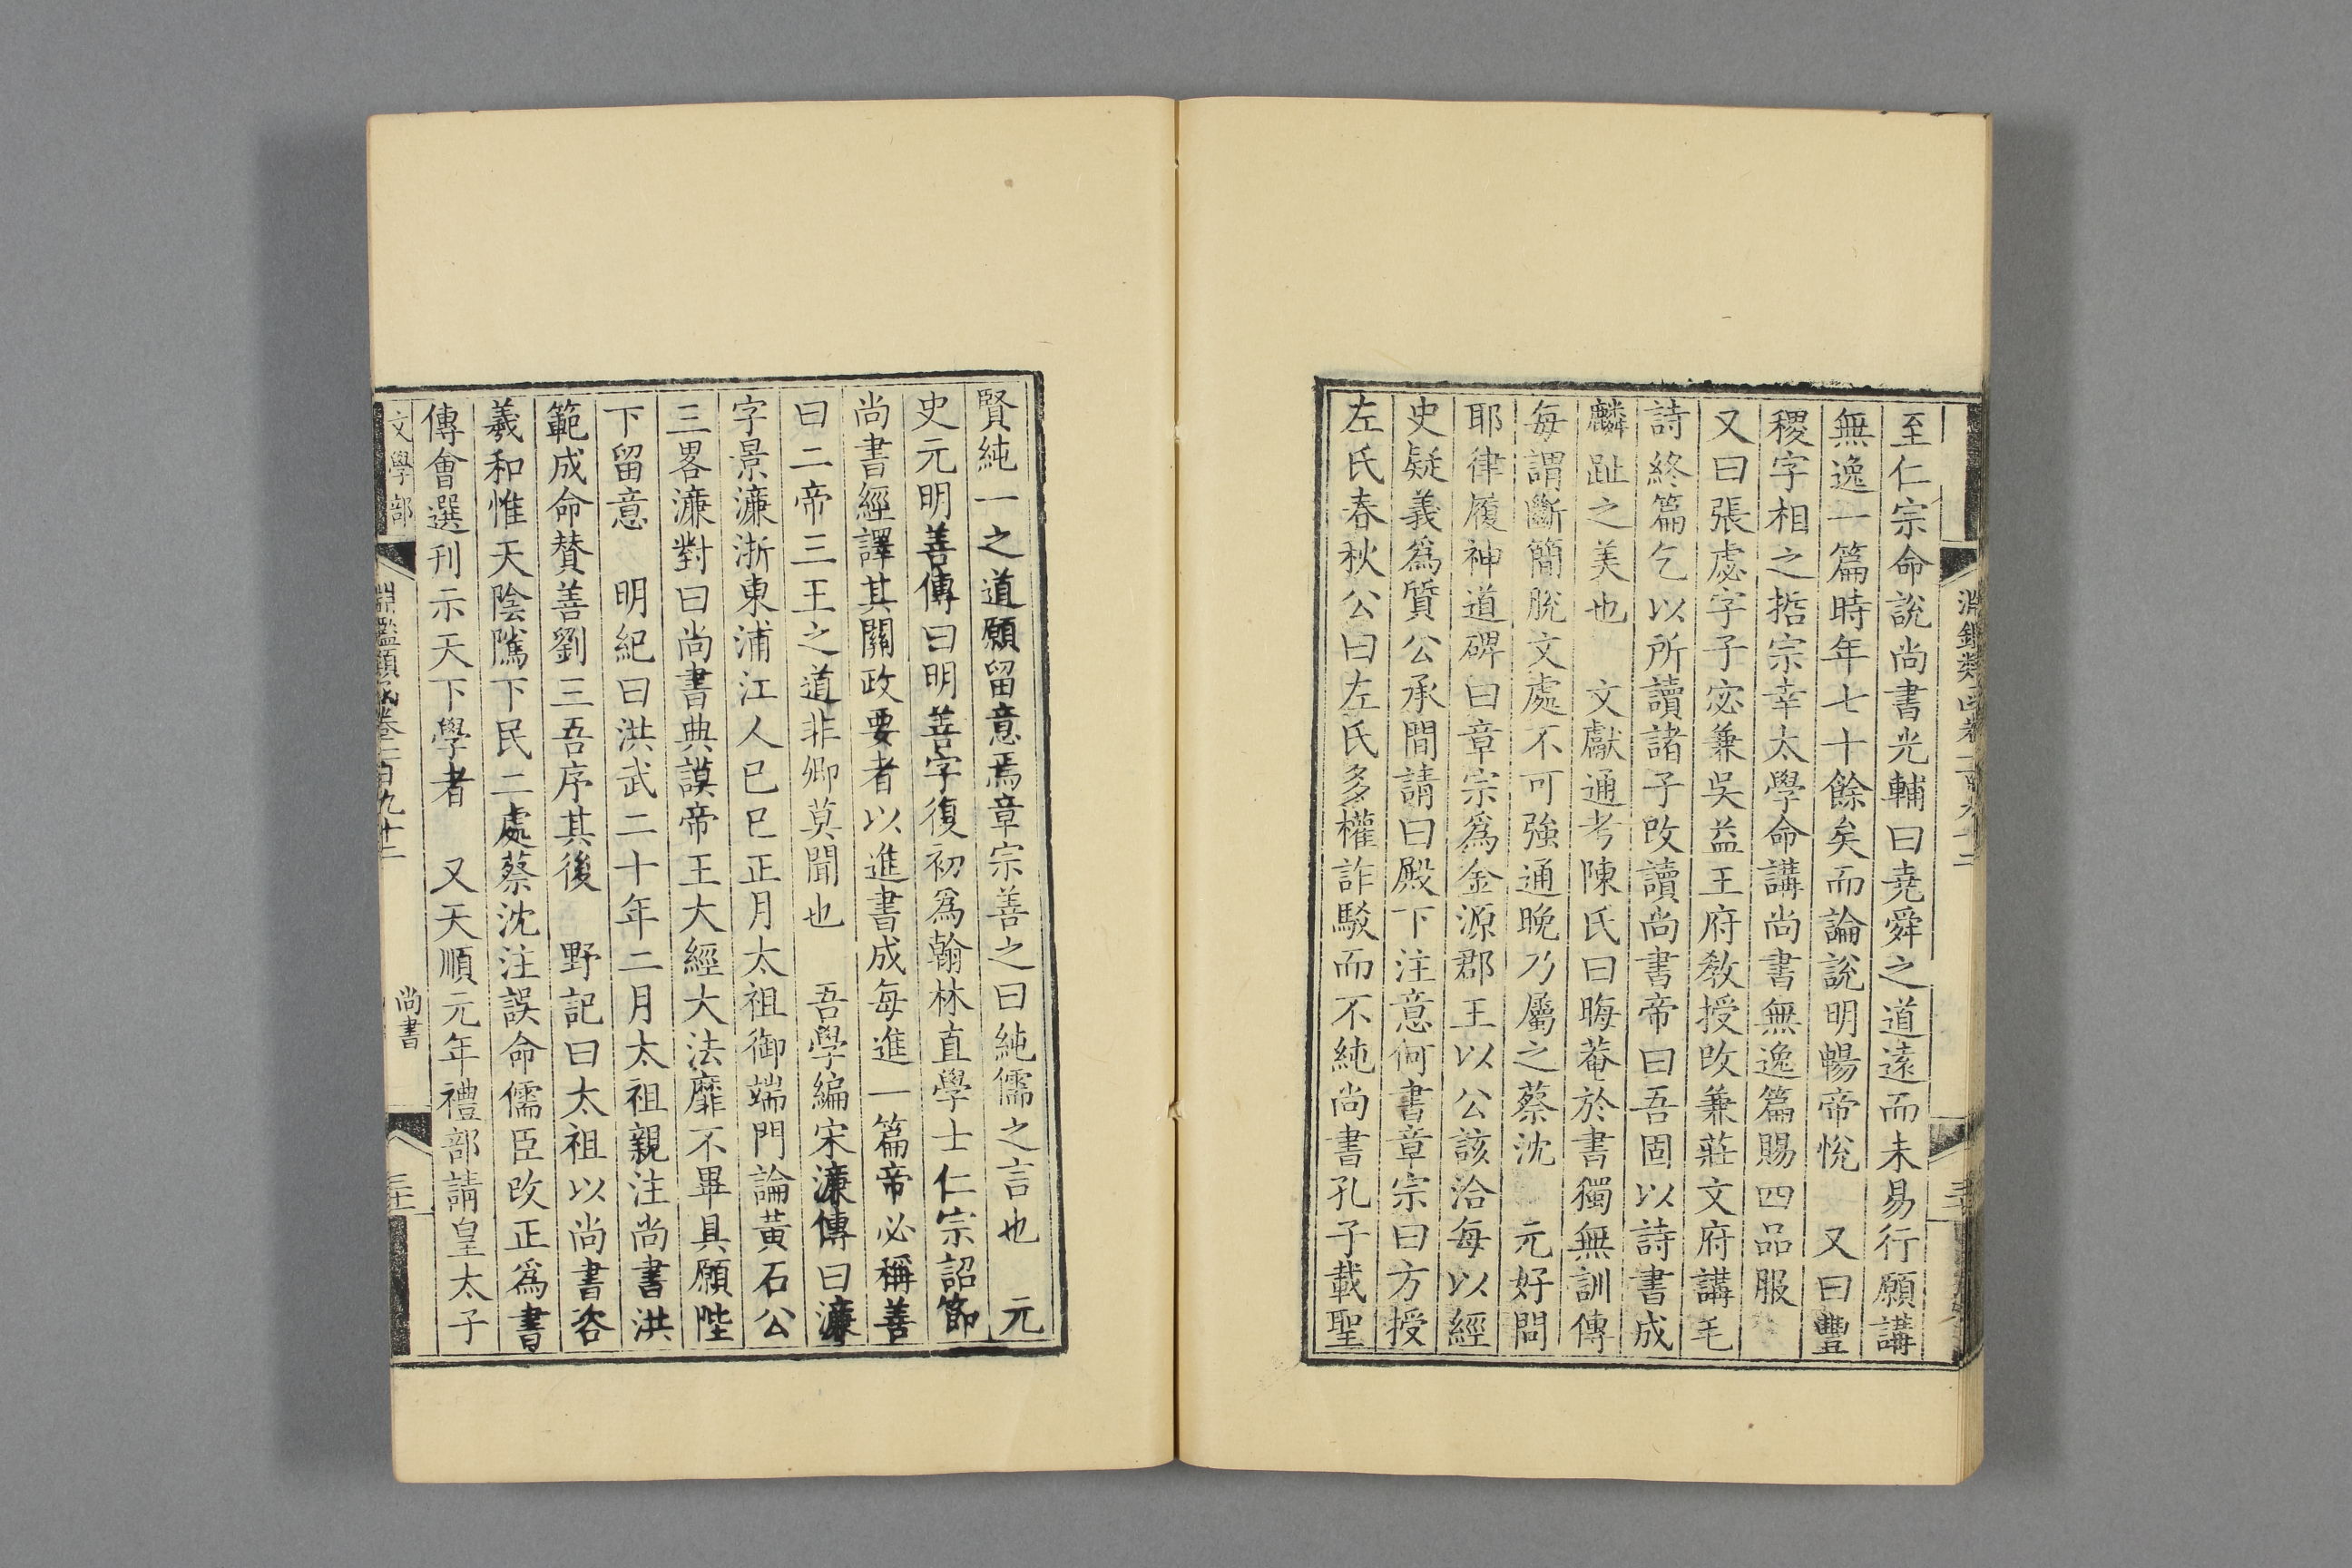 至仁宗命說尚書光輔曰堯舜之道遠而未易行願講
無逸一篇時年七十餘矣而論說明暢帝悅　又曰豐
稷字相之哲宗幸太學命講尚書無逸篇賜四品服
又曰張虙字子宓兼吳益王府敎授改兼莊文府講毛
詩終篇乞以所讀諸子改讀尚書帝曰吾固以詩書成
麟趾之美也　文獻通考陳氏曰晦菴於書獨無訓傳
每謂斷簡脫文處不可強通晚乃屬之蔡沈　元好問
耶律履神道碑曰章宗爲金源郡王以公該洽每以經
史疑義爲質公承間請曰殿下注意何書章宗曰方授
左氏春秋公曰左氏多權詐駁而不純尚書孔子載聖
賢純一之道願留意焉章宗善之曰純儒之言也　元
史元明善傳曰明善字復初爲翰林直學士仁宗詔節
尚書經譯其關政要者以進書成每進一篇帝必稱善
曰二帝三王之道非卿莫聞也　吾學編宋濂傳曰濂
字景濂浙東浦江人已巳正月太祖御端門論黃石公
三畧濂對曰尚書典謨帝王大經大法靡不畢具願陛
下留意　明紀曰洪武二十年二月太祖親注尚書洪
範成命賛善劉三吾序其後　野記曰太祖以尚書咨
羲和惟天陰隲下民二處蔡沈注誤命儒臣改正爲書
傳會選刊示天下學者　又天順元年禮部請皇太子
文學部
淵鑑類函卷一百九十二
尚書